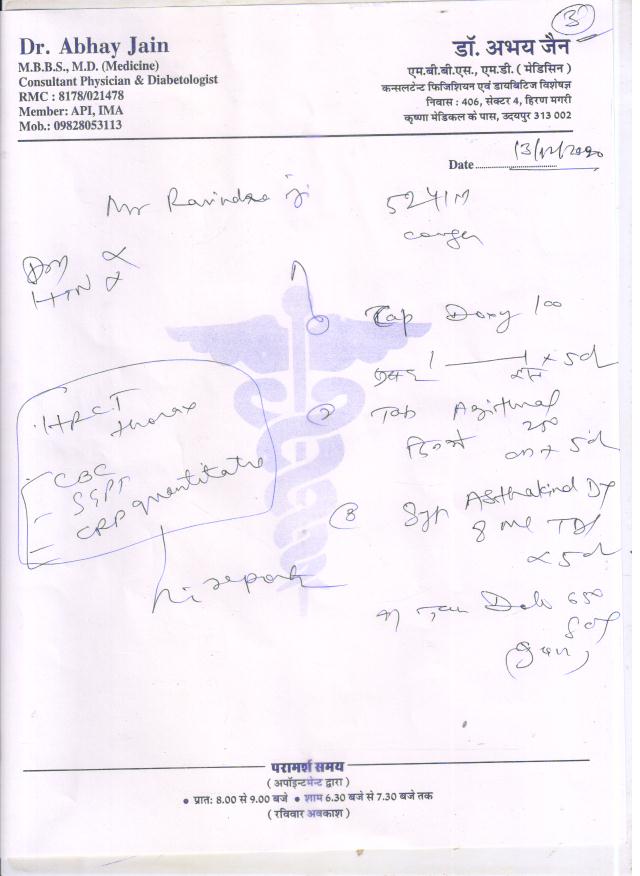 3
Dr. Abhay Jain
M.B.B.S., M.D. (Medicine)
Consultant Physician & Diabetologist
RMC : 8178/021478
Member: API, IMA
Mob.: 09828053113
डॉ. अभय जैन
एम.बी.बी.एस., एम.डी. ( मेडिसिन )
कन्सलटेन्ट फिजिशियन एवं डायबिटिज विशेषज्ञ
निवास : 406, सेक्टर 4, हिरण मगरी
कृष्णा मेडिकल के पास, उदयपुर 313 002
Date 13/12/2020
Mr Ravindra ji
52y/M
DM
HTN
Cap Doxy 100
1 1 x 5d
HRCT
thorax
CBC
SGPT
CRP quantitative
2 Tab Azithral
250
x 5d
3 Syp Asthakind DX
8 ml TDS
x 5d
report
Dolo 650
SOS
परामर्श समय
( अपॉइन्टमेन्ट द्वारा )
• प्रातः 8.00 से 9.00 बजे • शाम 6.30 बजे से 7.30 बजे तक
( रविवार अवकाश )